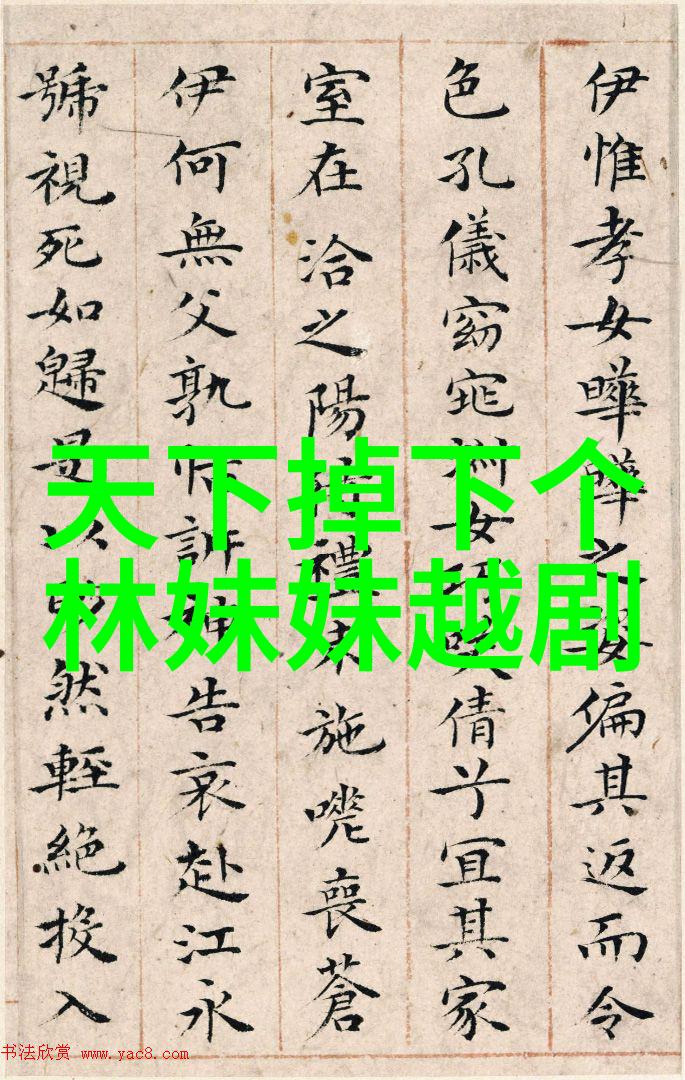 伊惟孝女曄曄之姿偏其返而令
色孔儀窈窕淑女巧笑倩兮宜其家
室在洽之陽待禮未施嗟喪蒼
伊何無父孰怙訴神告哀赴江永
號視死如歸是以眇然輕絕投入
天下掉下个
林妹妹越剧
书法欣赏 www.yac8.com